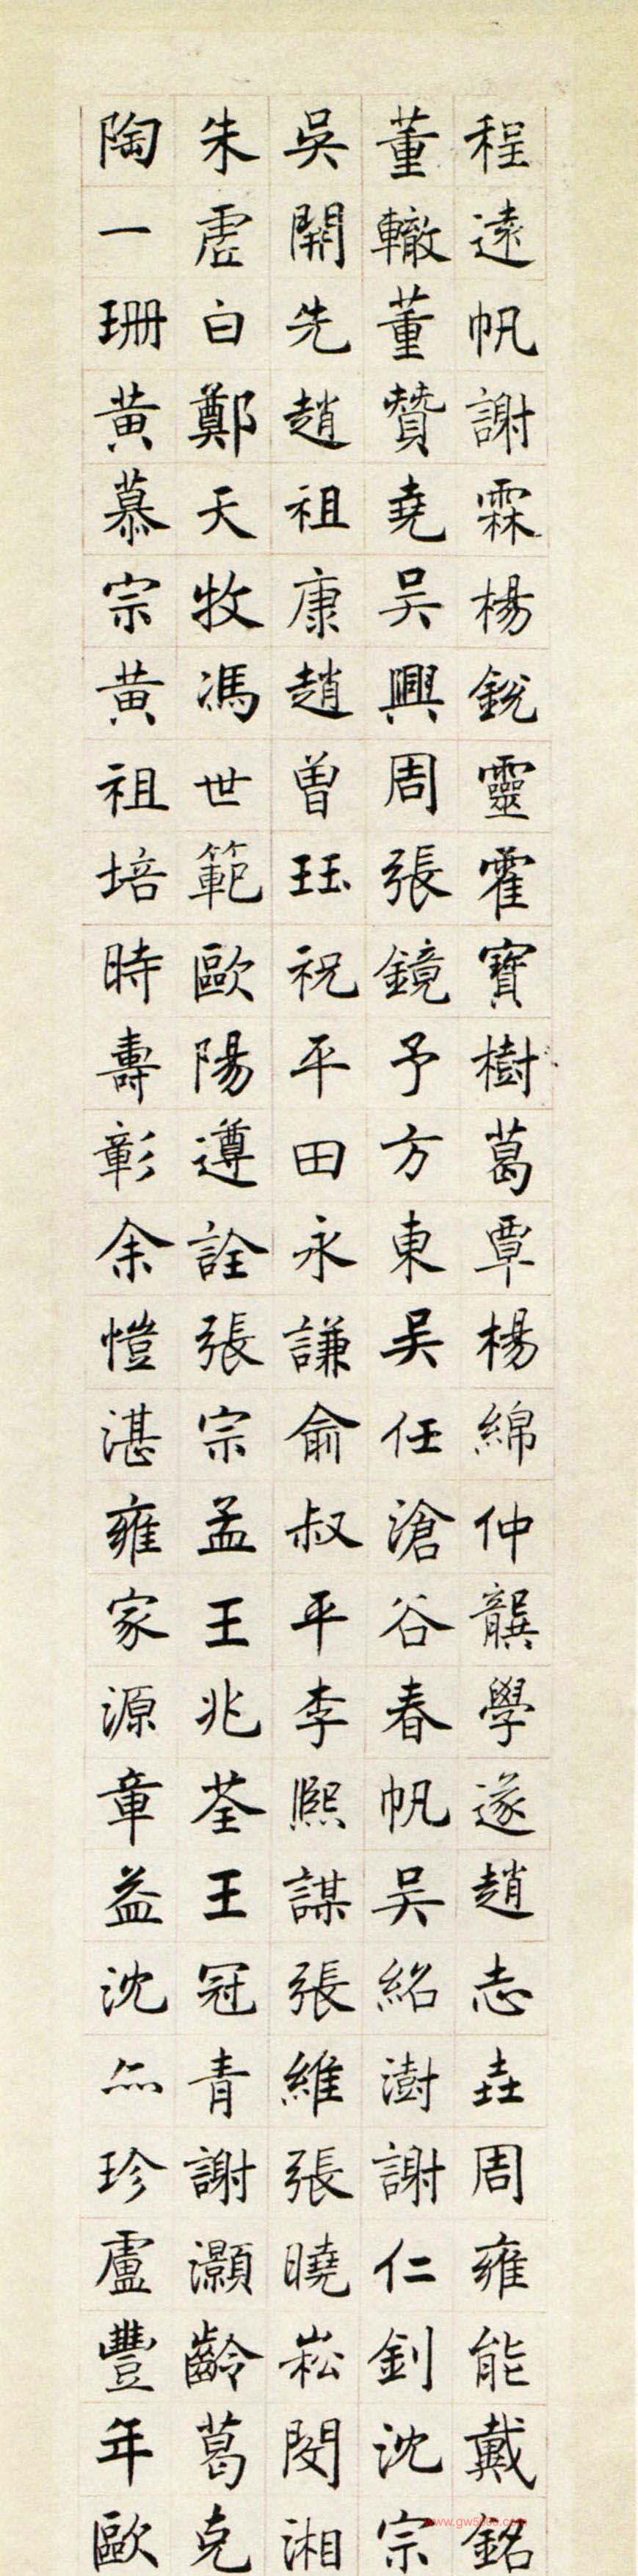 程遠帆謝霖楊銳靈霍寶樹葛覃楊綿仲龔學遂趙志垚周雍能戴銘
董轍董贊堯吳興周張鏡予方東吳任滄谷春帆吳紹澍謝仁釗沈宗
吳開先趙祖康趙曾珏祝平田永謙俞叔平李熙謀張維張曉崧閔湘
朱虛白鄭天牧馮世範歐陽遵詮張宗孟王兆荃王冠青謝灝齡葛克
陶一珊黃慕宗黃祖培時壽彰余愷湛雍家源章益沈尒珍盧豐年歐